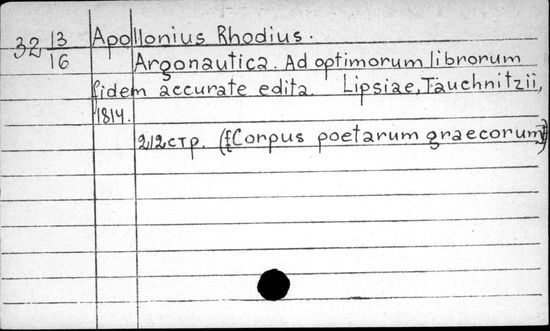 32 13/16 Apollonius Rhodius.
Argonautica. Ad optimorum librorum
fidem accurate edita. Lipsiae, Tauchnitzii,
1814.
212 стр. ([Corpus poetarum graecorum])